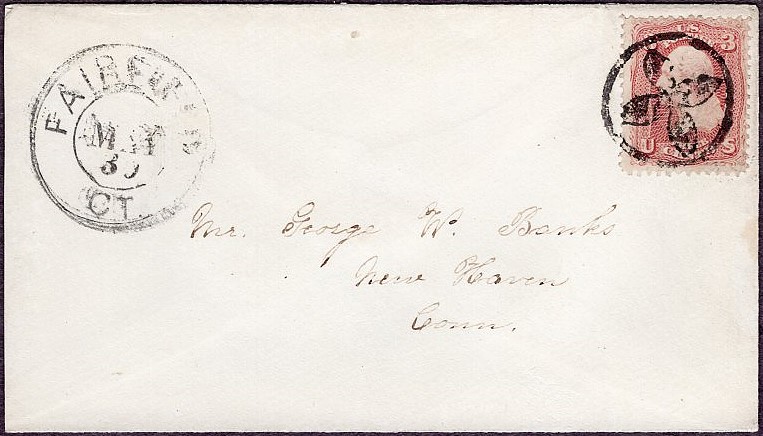 FAIRFIELD
MAY
30
CT.
U.S. 3
U S
Mr. George W. Banks
New Haven
Conn.